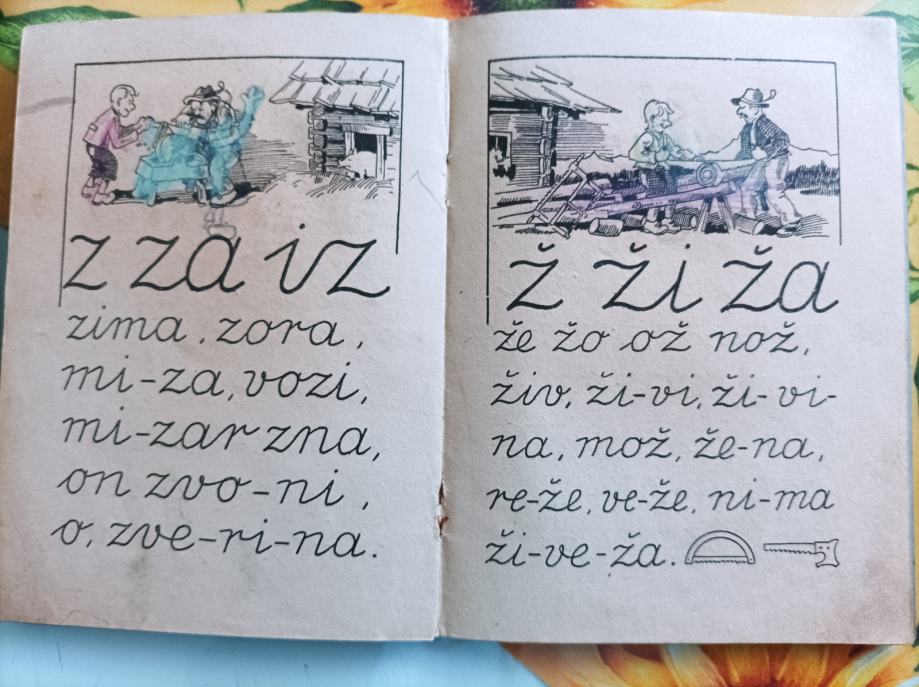 z za iz
zima, zora,
mi-za, vozi,
mi-zar zna,
on zvo-ni,
o, zve-ri-na.
ž ži ža
že žo ož nož,
živ, ži-vi, ži-vi-
na, mož, že-na,
re-že, ve-že, ni-ma
ži-ve-ža.